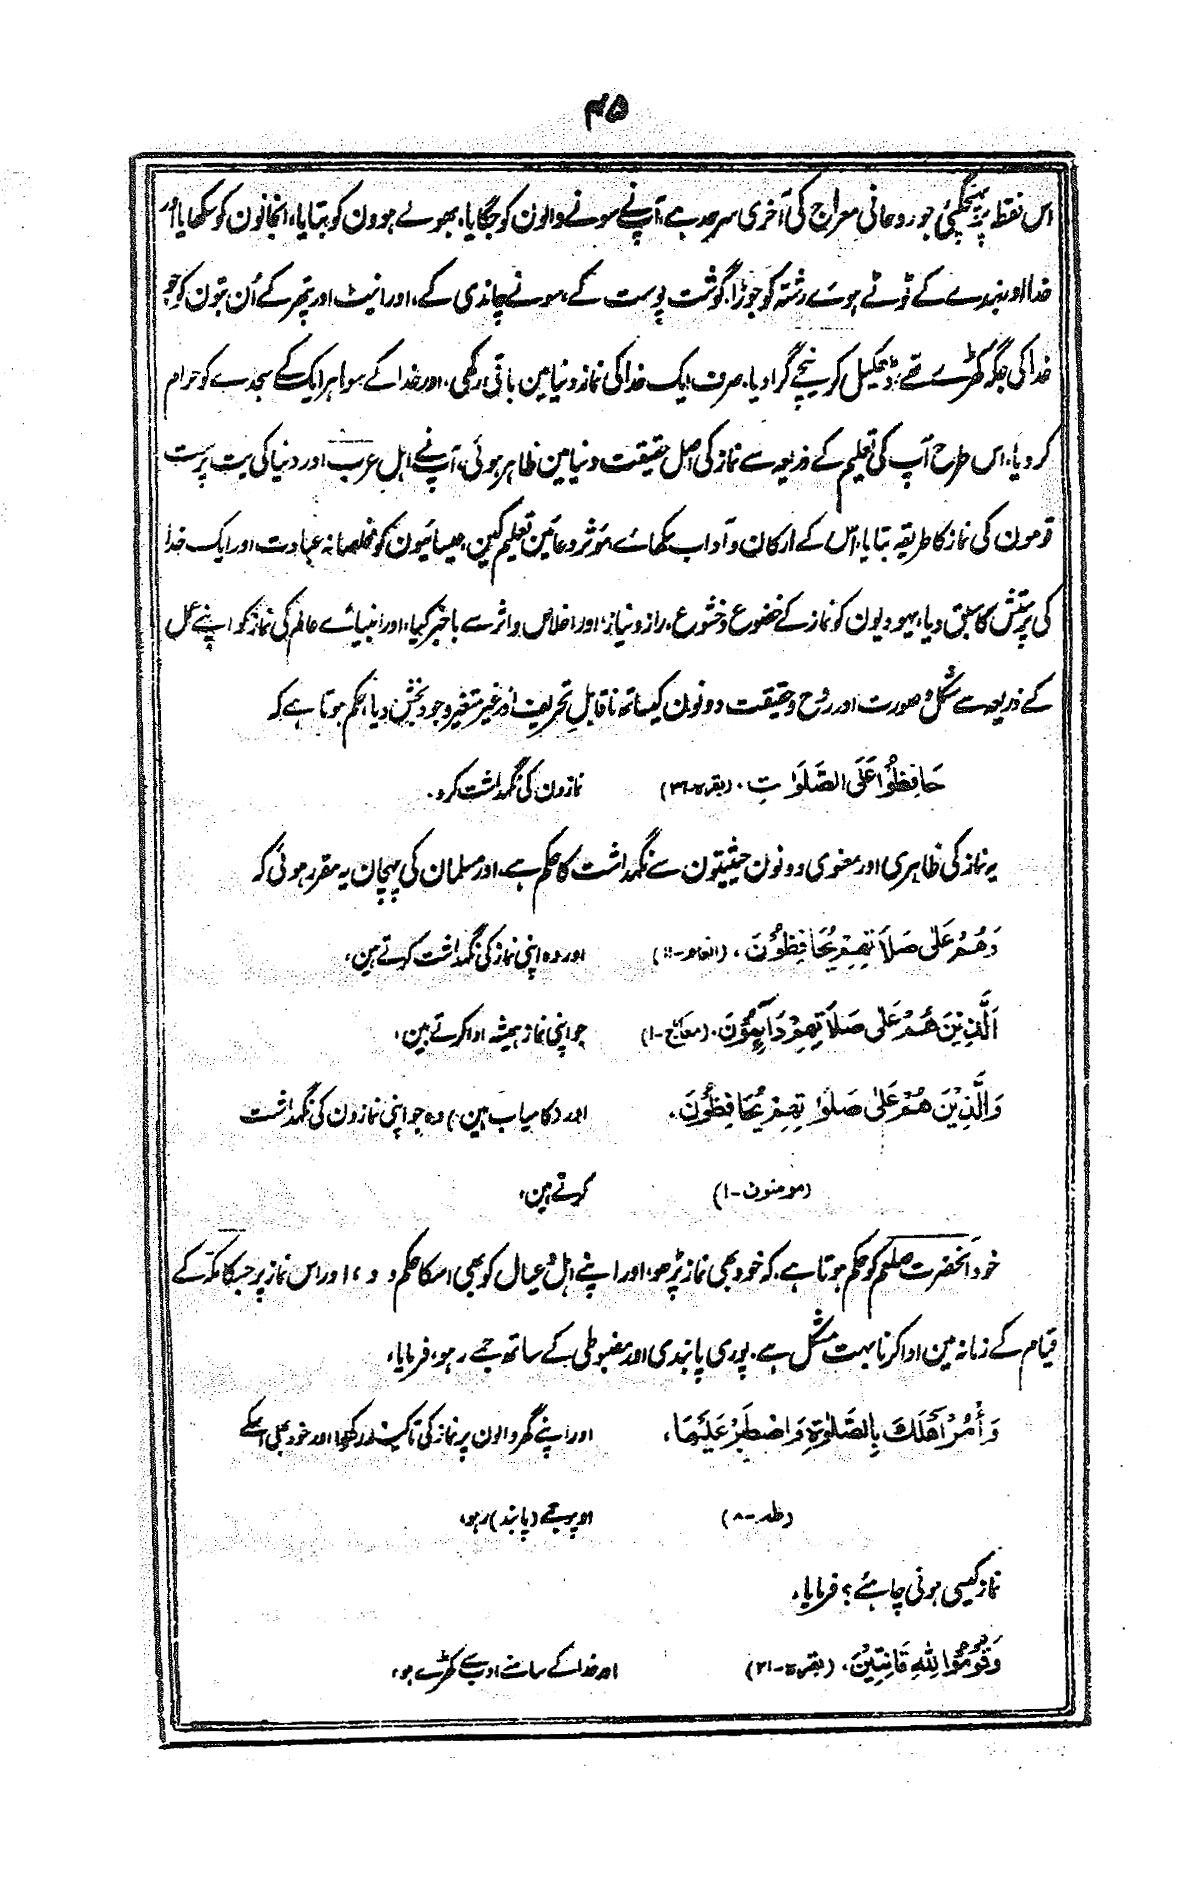 ۴۵
اس نقطہ پر پہنچ گئی جو روحانی معراج کی آخری سرحد ہے، آپنے سونے والون کو جگایا، بھولے ہوون کو بتایا، انجانون کو سکھایا اور
خدا اور بندے کے ٹوٹے ہوے رشتہ کو جوڑا، گوشت پوست کے، سونے چاندی کے، اور اینٹ اور پتھر کے اُن بتون کو جو
خدا کی جگہ کھڑے تھے، ڈھکیل کر نیچے گرا دیا، صرف ایک خدا کی نماز دنیا مین باقی رکھی، اور خدا کے سوا ہر ایک کے سجدے کو حرام
کر دیا، اس طرح آپ کی تعلیم کے ذریعہ سے نماز کی اصل حقیقت دنیا مین ظاہر ہوئی، آپ نے اہل عرب اور دنیا کی بت پرست
قومون کی نماز کا طریقہ بتایا، اس کے ارکان و آداب سکھاے، موثر دعائین تعلیم کین، عیسائیون کو مخلصانہ عبادت اور ایک خدا
کی پرستش کا سبق دیا، یہودیون کو نماز کے خضوع و خشوع، راز و نیاز، اور اخلاص و اثر سے باخبر کیا، اور انبیاے عالم کی نماز کو اپنے عمل
کے ذریعہ سے شکل و صورت اور روح و حقیقت دونون کیساتھ ناقابلِ تحریف اور غیر متغیر وجود بخش دیا، حکم ہوتا ہے کہ
حَافِظُوْا عَلَى الصَّلَوَاتِ، (بقرہ-۳۱) نمازون کی نگہداشت کرو،
یہ نماز کی ظاہری اور معنوی دونون حیثیتون سے نگہداشت کا حکم ہے، اور مسلمان کی پہچان یہ مقرر ہوئی کہ
وَهُمْ عَلٰى صَلَاتِهِمْ يُحَافِظُوْنَ، (انعام-۱۱) اور وہ اپنی نماز کی نگہداشت کرتے ہین،
اَلَّذِيْنَ هُمْ عَلٰى صَلَاتِهِمْ دَآئِمُوْنَ، (معارج-۱) جو اپنی نماز ہمیشہ ادا کرتے ہین،
وَالَّذِيْنَ هُمْ عَلٰى صَلَوَاتِهِمْ يُحَافِظُوْنَ، اور (کامیاب ہین) وہ جو اپنی نمازون کی نگہداشت
(مومنون-۱) کرتے ہین،
خود آنحضرت صلعم کو حکم ہوتا ہے، کہ خود بھی نماز پڑھو، اور اپنے اہل و عیال کو بھی اسکا حکم دو، اور اس نماز پر جسکا مکہ کے
قیام کے زمانہ مین ادا کرنا بہت مشکل ہے، پوری پابندی اور مضبوطی کے ساتھ جمے رہو، فرمایا،
وَأْمُرْ اَهْلَكَ بِالصَّلٰوةِ وَاصْطَبِرْ عَلَيْهَا، اور اپنے گھر والون پر نماز کی تاکید رکھو، اور خود بھی اسکے
(طٰہٰ-۸) اوپر جمے (پابند) رہو،
نماز کیسی ہونی چاہئے؟ فرمایا،
وَقُوْمُوْا لِلّٰهِ قَانِتِيْنَ، (بقرہ-۳۱) اور خدا کے سامنے ادب سے کھڑے ہو،